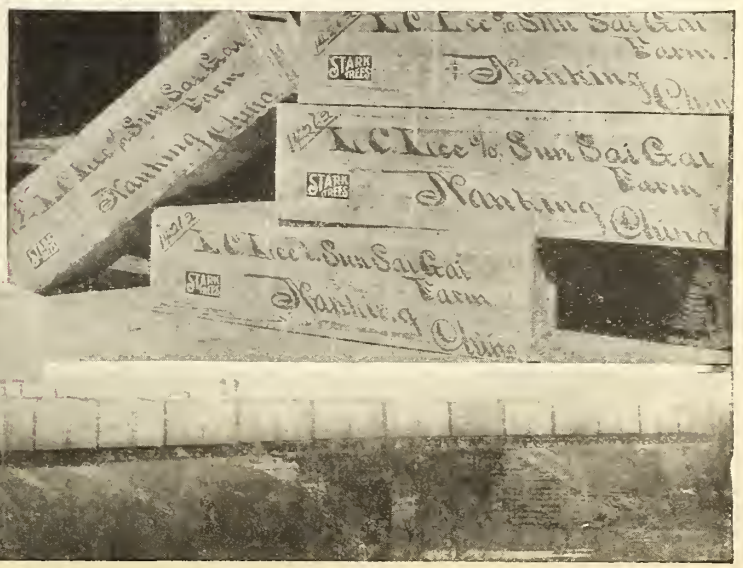 L.C. Lee % Sun Sai Gai
Farm
STARK
TREES
Nanking
China
L.C. Lee % Sun Sai Gai
Farm
STARK
TREES
Nanking
China
L.C. Lee % Sun Sai Gai
Farm
STARK
TREES
Nanking
China
L.C. Lee % Sun Sai Gai
Farm
STARK
TREES
Nanking
China